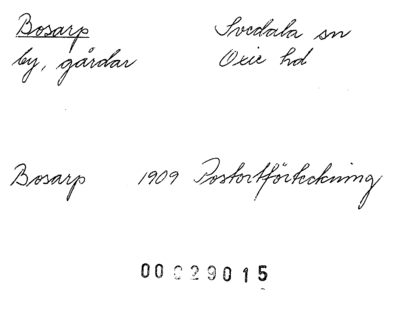 Bosarp Svedala sn
by, gårdar Oxie hd
Bosarp 1909 Postortförteckning
00029015